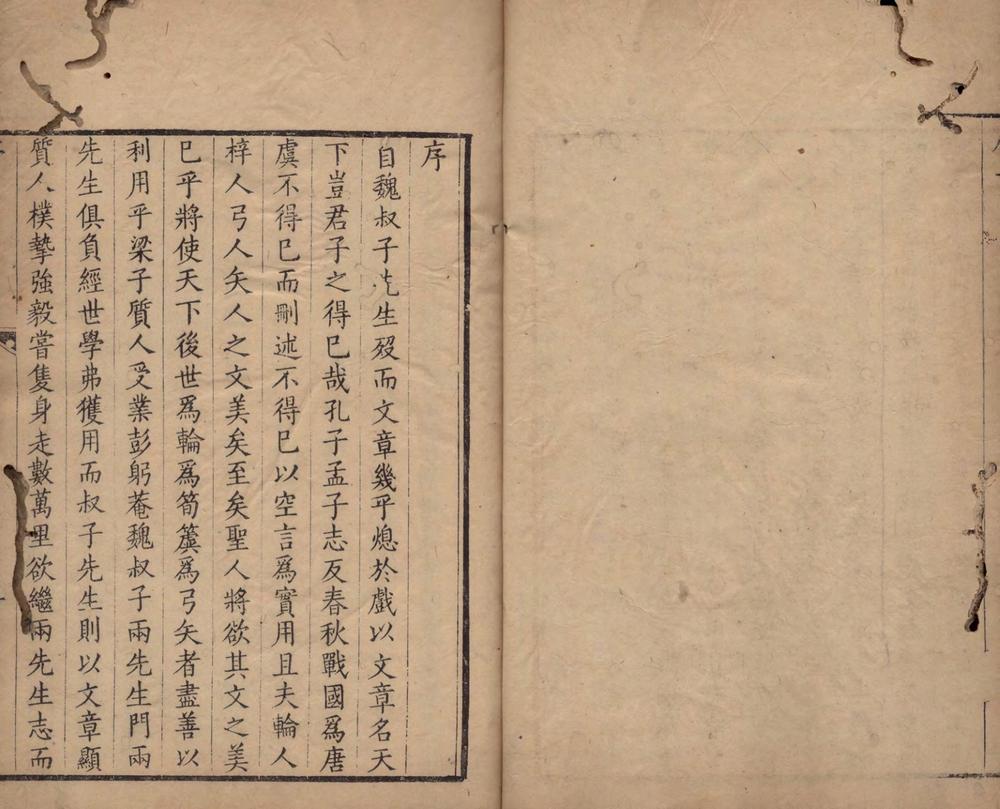 序
自魏叔子先生歿而文章幾乎熄於戲以文章名天
下豈君子之得已哉孔子孟子志反春秋戰國爲唐
虞不得已而刪述不得已以空言爲實用且夫輪人
梓人弓人矢人之文美矣至矣聖人將欲其文之美
已乎將使天下後世爲輪爲筍簴爲弓矢者盡善以
利用乎梁子質人受業彭躬菴魏叔子兩先生門兩
先生俱負經世學弗獲用而叔子先生則以文章顯
質人樸摯強毅嘗隻身走數萬里欲繼兩先生志而